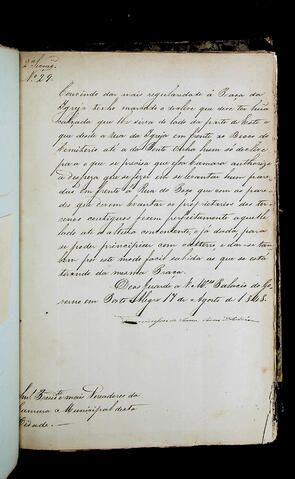 2ª Secção
N.º 29.
Convindo dar mais regularidade à Praça da
Igreja tenho marcado o declive que deve ter huã
calçada que lhe sirva de lado da parte de Leste e
que desde a rua da Igreja em frente ao Becco do
Cemiterio até a do tenha hum só declive
para o que se precisa que essa Camara authorize
a despeza que se fizer em se levantar hum pare-
dão em frente à Rua do Poço que com as pare-
des que devem levantar os proprietarios dos ter-
renos contiguos fechem perfeitamente aquelle
lado até a altura conveniente, e já dada, para
se poder principiar com o atterro e dar-se tam-
bem por este modo facil sahida as que se está
tirando da mesma Praça.
Deos Guarde a V. Mces. Palacio do Go-
verno em Porto Alegre 17 de Agosto de 1848.
Snrs. Presidte. e mais Vereadores da
Camara Municipal desta
Cidade.